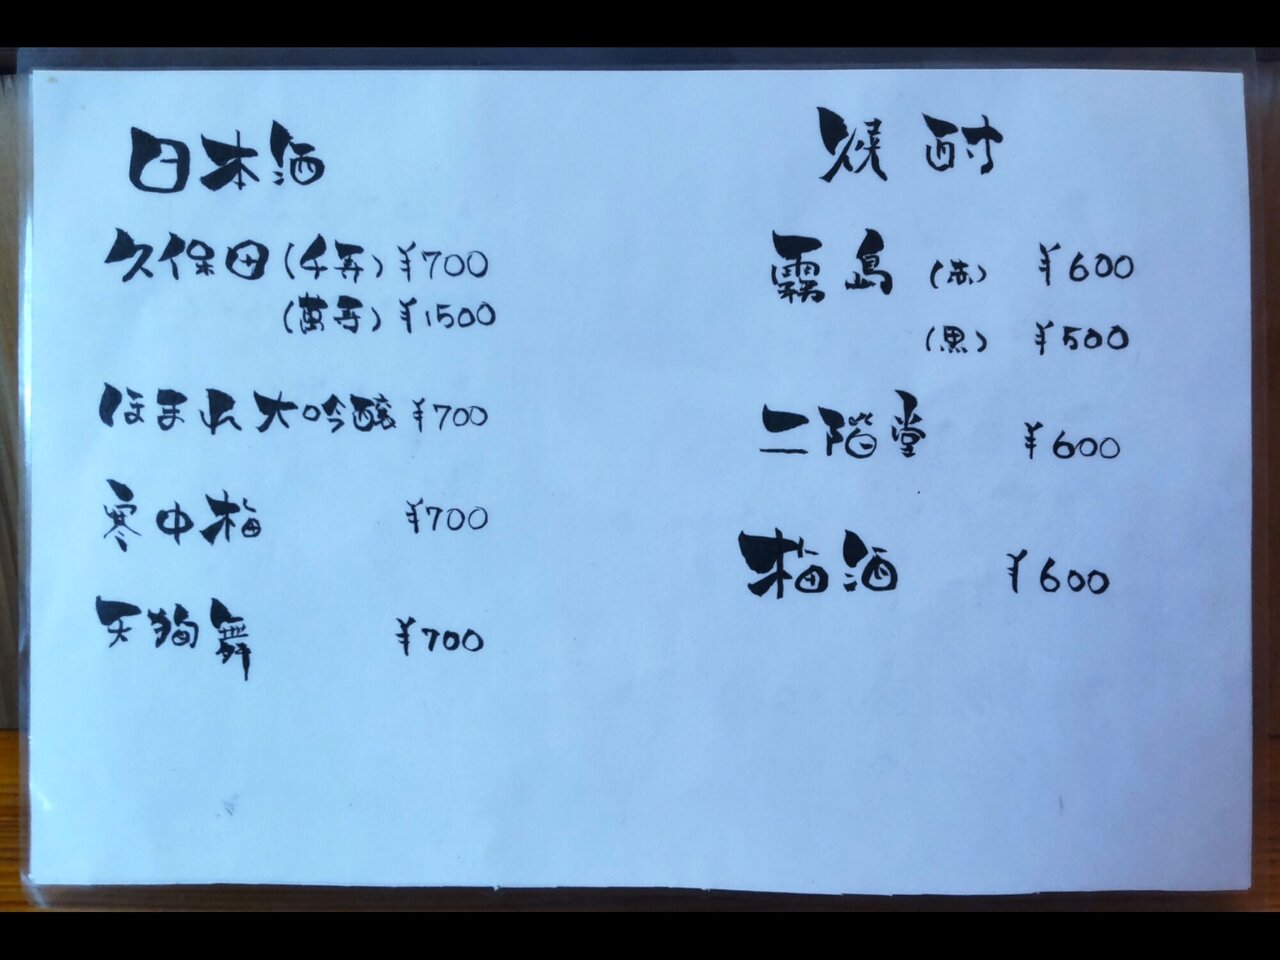 日本酒
久保田(千寿) ¥700
(萬寿) ¥1500
ほまれ大吟醸 ¥700
寒中梅 ¥700
天狗舞 ¥700
焼酎
霧島(赤) ¥600
(黒) ¥500
二階堂 ¥600
梅酒 ¥600